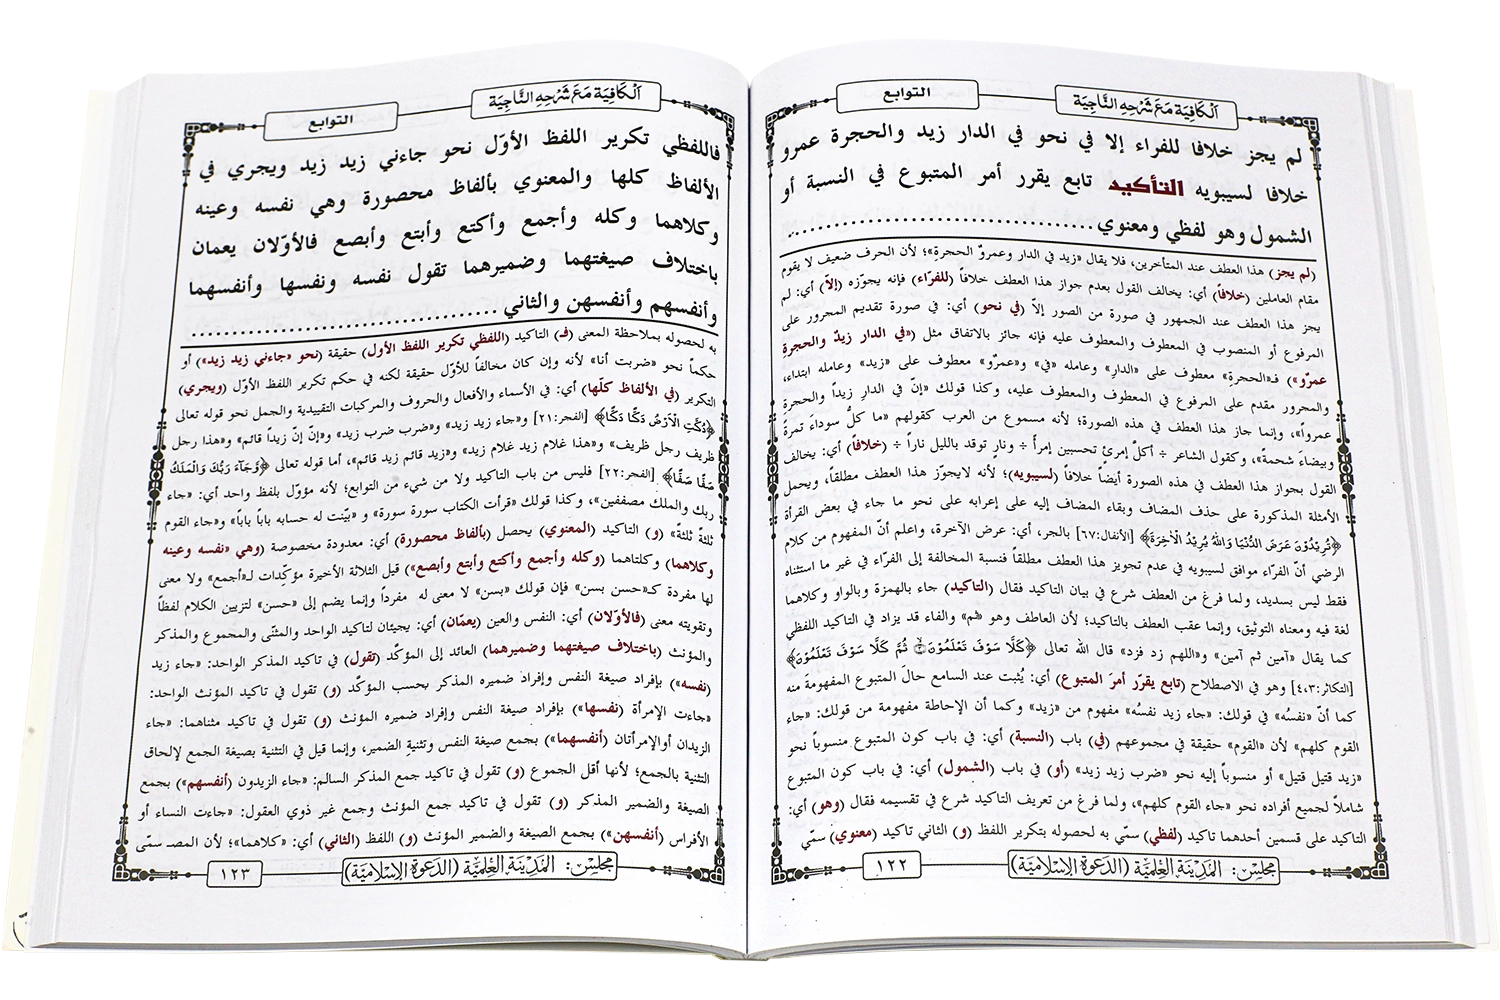 اَلْكَافِيَة مَعَ شَرْحِهِ النَّاجِيَة
التوابع
لم يجز خلافا للفراء إلا في نحو في الدار زيد والحجرة عمرو
خلافا لسيبويه التأكيد تابع يقرر أمر المتبوع في النسبة أو
الشمول وهو لفظي ومعنوي........................................
(لم يجز) هذا العطف عند المتأخرين، فلا يقال «زيد في الدار وعمروٌ الحجرة»؛ لأن الحرف ضعيف لا يقوم
مقام العاملين (خلافاً) أي: يخالف القول بعدم جواز هذا العطف خلافاً (للفرّاء) فإنه يجوّزه (إلاّ) أي: لم
يجز هذا العطف عند الجمهور في صورة من الصور إلاّ (في نحو) أي: في صورة تقديم المجرور على
المرفوع أو المنصوب في المعطوف والمعطوف عليه فإنه جائز بالاتفاق مثل («في الدار زيدٌ والحجرةِ
عمرٌو») فـ«الحجرةِ» معطوف على «الدارِ» وعامله «في» و«عمرٌو» معطوف على «زيد» وعامله ابتداء،
والمجرور مقدم على المرفوع في المعطوف والمعطوف عليه، وكذا قولك «إنّ في الدارِ زيداً والحجرةِ
عمرواً»، وإنما جاز هذا العطف في هذه الصورة؛ لأنه مسموع من العرب كقولهم «ما كلُّ سوداءَ تمرةً
وبيضاءَ شحمةً»، وكقول الشاعر ÷ أكلَّ إمرئٍ تحسبين إمرأً ÷ ونارٍ توقد بالليل ناراً ÷ (خلافاً) أي: يخالف
القول بجواز هذا العطف في هذه الصورة أيضاً خلافاً (لسيبويه)؛ لأنه لايجوّز هذا العطف مطلقاً، ويحمل
الأمثلة المذكورة على حذف المضاف وبقاء المضاف إليه على إعرابه على نحو ما جاء في بعض القرأة
﴿تُرِيْدُوْنَ عَرَضَ الدُّنْيَا وَاللهُ يُرِيْدُ الْاٰخِرَةَ﴾ [الأنفال:٦٧] بالجر، أي: عرض الآخرة، واعلم أنّ المفهوم من كلام
الرضي أنّ الفرّاء موافق لسيبويه في عدم تجويز هذا العطف مطلقاً فنسبة المخالفة إلى الفرّاء في غير ما استثناه
فقط ليس بسديد، ولما فرغ من العطف شرع في بيان التاكيد فقال (التاكيد) جاء بالهمزة وبالواو وكلاهما
لغة فيه ومعناه التوثيق، وإنما عقب العطف بالتاكيد؛ لأن العاطف وهو «ثم» والفاء قد يزاد في التاكيد اللفظي
كما يقال «آمين ثم آمين» و«اللهم زد فزد» قال الله تعالى ﴿كَلَّا سَوْفَ تَعْلَمُوْنَ ثُمَّ كَلَّا سَوْفَ تَعْلَمُوْنَ﴾
[التكاثر:٤،٣] وهو في الاصطلاح (تابع يقرّر أمرَ المتبوع) أي: يُثبت عند السامع حالَ المتبوع المفهومةَ منه
كما أنّ «نفسُه» في قولك: «جاء زيد نفسُه» مفهوم من «زيد» وكما أن الإحاطة مفهومة من قولك: «جاء
القوم كلهم» لأن «القوم» حقيقة في مجموعهم (في) باب (النسبة) أي: في باب كون المتبوع منسوباً نحو
«زيد قتيل قتيل» أو منسوباً إليه نحو «ضرب زيد زيد» (أو) في باب (الشمول) أي: في باب كون المتبوع
شاملاً لجميع أفراده نحو «جاء القوم كلهم»، ولما فرغ من تعريف التاكيد شرع في تقسيمه فقال (وهو) أي:
التاكيد على قسمين أحدهما تاكيد (لفظي) سمّي به لحصوله بتكرير اللفظ (و) الثاني تاكيد (معنوي) سمّي
مجلس: المَدِيْنَة العِلْمِيَّة (الدعوة الإسلاميّة)
١٢٢
اَلْكَافِيَة مَعَ شَرْحِهِ النَّاجِيَة
التوابع
فاللفظي تكرير اللفظ الأوّل نحو جاءني زيد زيد ويجري في
الألفاظ كلها والمعنوي بألفاظ محصورة وهي نفسه وعينه
وكلاهما وكله وأجمع وأكتع وأبتع وأبصع فالأوّلان يعمان
باختلاف صيغتهما وضميرهما تقول نفسه ونفسها وأنفسهما
وأنفسهم وأنفسهن والثاني........................................
به لحصوله بملاحظة المعنى (فـ) التاكيد (اللفظي تكرير اللفظ الأول) حقيقة (نحو «جاءني زيد زيد») أو
حكماً نحو «ضربت أنا» لأنه وإن كان مخالفاً للأوّل حقيقة لكنه في حكم تكرير اللفظ الأوّل (ويجري)
التكرير (في الألفاظ كلّها) أي: في الأسماء والأفعال والحروف والمركبات التقييدية والجمل نحو قوله تعالى
﴿دُكَّتِ الْاَرْضُ دَكًّا دَكًّا﴾ [الفجر:٢١] و«جاء زيد زيد» و«ضرب ضرب زيد» و«إنّ إنّ زيداً قائم» و«هذا رجل
ظريف رجل ظريف» و«هذا غلام زيد غلام زيد» و«زيد قائم زيد قائم»، أما قوله تعالى ﴿وَّجَآءَ رَبُّكَ وَالْمَلَكُ
صَفًّا صَفًّا﴾ [الفجر:٢٢] فليس من باب التاكيد ولا من شيء من التوابع؛ لأنه مؤوّل بلفظ واحد أي: «جاء
ربك والملك مصففين»، وكذا قولك «قرأت الكتاب سورة سورة» و «بيّنت له حسابه باباً باباً» و«جاء القوم
ثلثةً ثلثةً» (و) التاكيد (المعنوي) يحصل (بألفاظ محصورة) أي: معدودة مخصوصة (وهي «نفسه وعينه
وكلاهما) وكلتاهما (وكله وأجمع وأكتع وأبتع وأبصع») قيل الثلاثة الأخيرة مؤكّدات لـ«أجمع» ولا معنى
لها مفردة كـ«حسن بسن» فإن قولك «بسن» لا معنى له مفرداً وإنما يضم إلى «حسن» لتزيين الكلام لفظاً
وتقويته معنى (فالأوّلان) أي: النفس والعين (يعمّان) أي: يجيئان لتاكيد الواحد والمثنّى والمجموع والمذكر
والمؤنث (باختلاف صيغتهما وضميرهما) العائد إلى المؤكّد (تقول) في تاكيد المذكر الواحد: «جاء زيد
(نفسه») بإفراد صيغة النفس وإفراد ضميره المذكر بحسب المؤكّد (و) تقول في تاكيد المؤنث الواحد:
«جاءت الإمرأة (نفسها») بإفراد صيغة النفس وإفراد ضميره المؤنث (و) تقول في تاكيد مثناهما: «جاء
الزيدان أوالإمرأتان (أنفسهما») بجمع صيغة النفس وتثنية الضمير، وإنما قيل في التثنية بصيغة الجمع لإلحاق
التثنية بالجمع؛ لأنها أقل الجموع (و) تقول في تاكيد جمع المذكر السالم: «جاء الزيدون (أنفسهم») بجمع
الصيغة والضمير المذكر (و) تقول في تاكيد جمع المؤنث وجمع غير ذوي العقول: «جاءت النساء أو
الأفراس (أنفسهن») بجمع الصيغة والضمير المؤنث (و) اللفظ (الثاني) أي: «كلاهما»؛ لأن المصـ سمّى
مجلس: المَدِيْنَة العِلْمِيَّة (الدعوة الإسلاميّة)
١٢٣